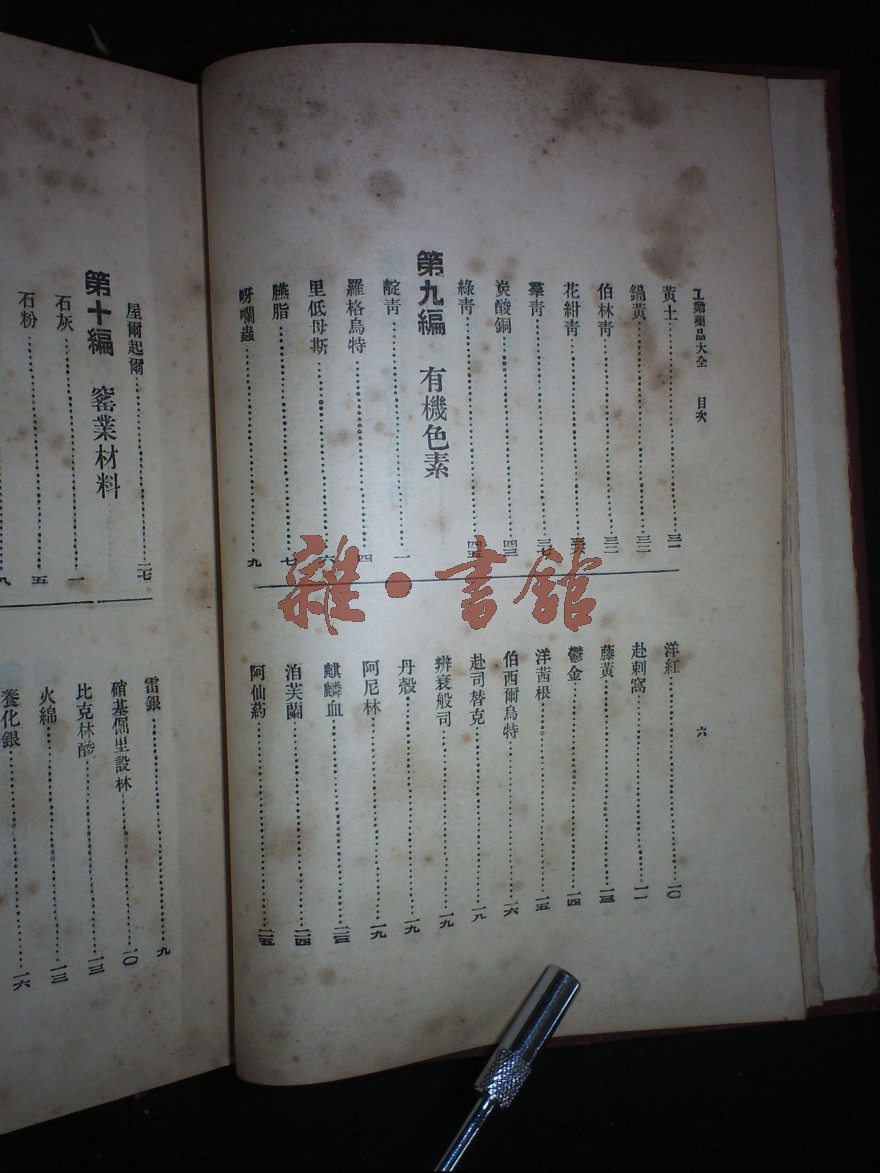 工業藥品大全 目次
六
黃土 三一
鎘黃 三二
伯林青 三二
花紺青
羣青 三七
炭酸銅 四三
綠青 四五
第九編 有機色素
靛青 一
羅格烏特 四
里低母斯 六
臙脂 七
呀囒蟲 九
洋紅 一〇
赴刺窩 一一
藤黃 一三
鬱金 一四
洋茜根 一五
伯西爾烏特 一六
赴司替克 一八
辨衰般司 一九
丹殼 一九
阿尼林 一九
麒麟血 二三
泊芙蘭 二四
阿仙葯 二五
屋爾起爾 二七
第十編 窰業材料
石灰 一
石粉 五
八
雷銀 九
硝基偭里設林 一〇
比克林酸 一三
火綿 一三
養化銀 一六
雜·書館